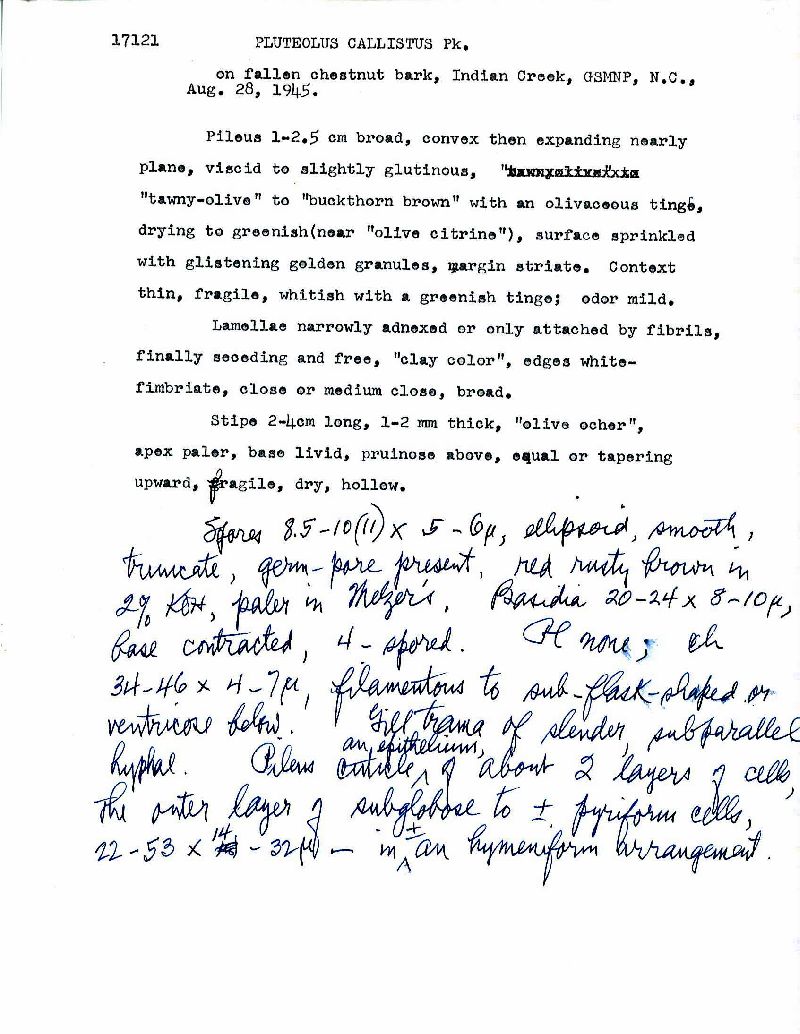 17121 PLUTEOLUS CALLISTUS Pk.
on fallen chestnut bark, Indian Creek, GSMNP, N.C.,
Aug. 28, 1945.
Pileus 1-2.5 cm broad, convex then expanding nearly
plane, viscid to slightly glutinous,
"tawny-olive" to "buckthorn brown" with an olivaceous tinge,
drying to greenish(near "olive citrine"), surface sprinkled
with glistening golden granules, margin striate. Context
thin, fragile, whitish with a greenish tinge; odor mild.
Lamellae narrowly adnexed or only attached by fibrils,
finally seceding and free, "clay color", edges white-
fimbriate, close or medium close, broad.
Stipe 2-4cm long, 1-2 mm thick, "olive ocher",
apex paler, base livid, pruinose above, equal or tapering
upward, fragile, dry, hollow.
Spores 8.5-10(11) x 5-6μ, ellipsoid, smooth,
truncate, germ-pore present, red rusty brown in
2% KOH, paler in Melzer's. Basidia 20-24 x 8-10μ,
base contracted, 4-spored. Pl none; ch
34-46 x 4-7μ, filamentous to sub-flask-shaped or
ventricose below. Gill trama of slender, subparallel
hyphae. Pileus cuticle, an epithelium, of about 2 layers of cells,
the outer layer of subglobose to ± pyriform cells,
22-53 x 14-32μ — in ± an hymeniform arrangement.